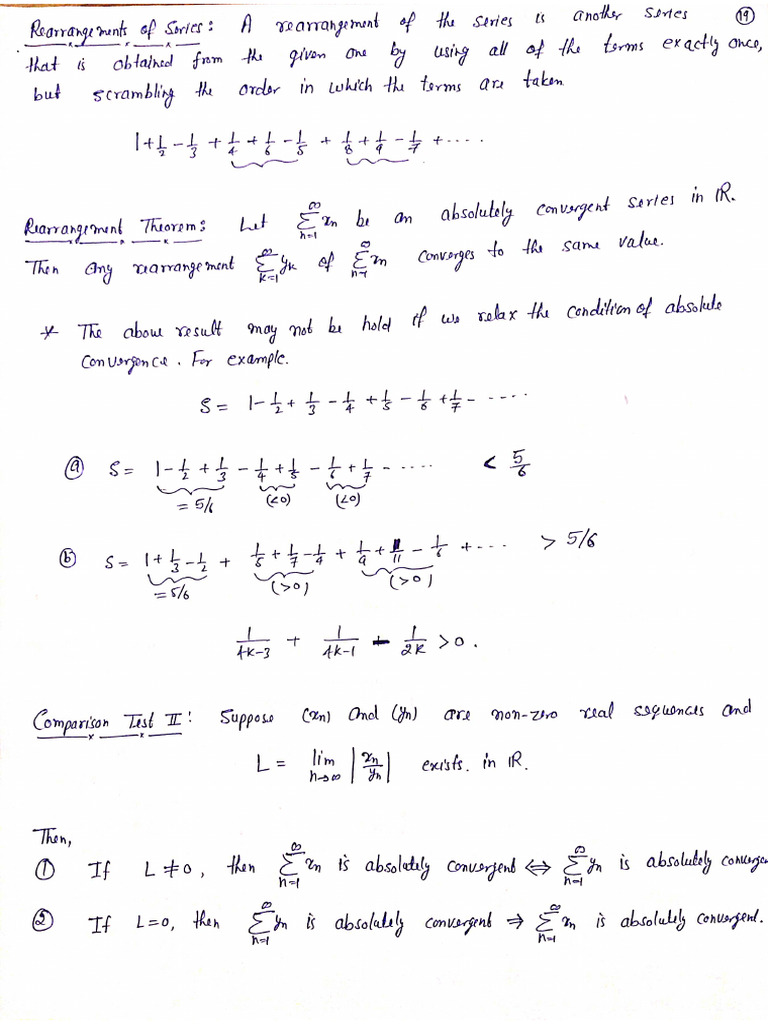 Rearrangements of Series: A rearrangement of the series is another series (19)
that is obtained from the given one by using all of the terms exactly once,
but scrambling the order in which the terms are taken
1 + 1/2 - 1/3 + 1/4 + 1/6 - 1/5 + 1/8 + 1/9 - 1/7 + ....
Rearrangement Theorem: Let ∑_{n=1}^{∞} xn be an absolutely convergent series in IR.
Then any rearrangement ∑_{k=1}^{∞} yk of ∑_{n=1}^{∞} xn converges to the same value.
* The above result may not be hold if we relax the condition of absolute
convergence. For example.
S = 1 - 1/2 + 1/3 - 1/4 + 1/5 - 1/6 + 1/7 - ....
(a) S = 1 - 1/2 + 1/3 - 1/4 + 1/5 - 1/6 + 1/7 - .... < 5/6
= 5/6 (<0) (<0)
(b) S = 1 + 1/3 - 1/2 + 1/5 + 1/7 - 1/4 + 1/9 + 1/11 - 1/6 + .... > 5/6
= 5/6 (>0) (>0)
1/(4k-3) + 1/(4k-1) - 1/(2k) > 0.
Comparison Test II: Suppose (xn) and (yn) are non-zero real sequences and
L = lim_{n→∞} |xn/yn| exists. in IR.
Then,
(1) If L ≠ 0, then ∑_{n=1}^{∞} xn is absolutely convergent ⇔ ∑_{n=1}^{∞} yn is absolutely converge
(2) If L = 0, then ∑_{n=1}^{∞} yn is absolutely convergent ⇒ ∑_{n=1}^{∞} xn is absolutely convergent.